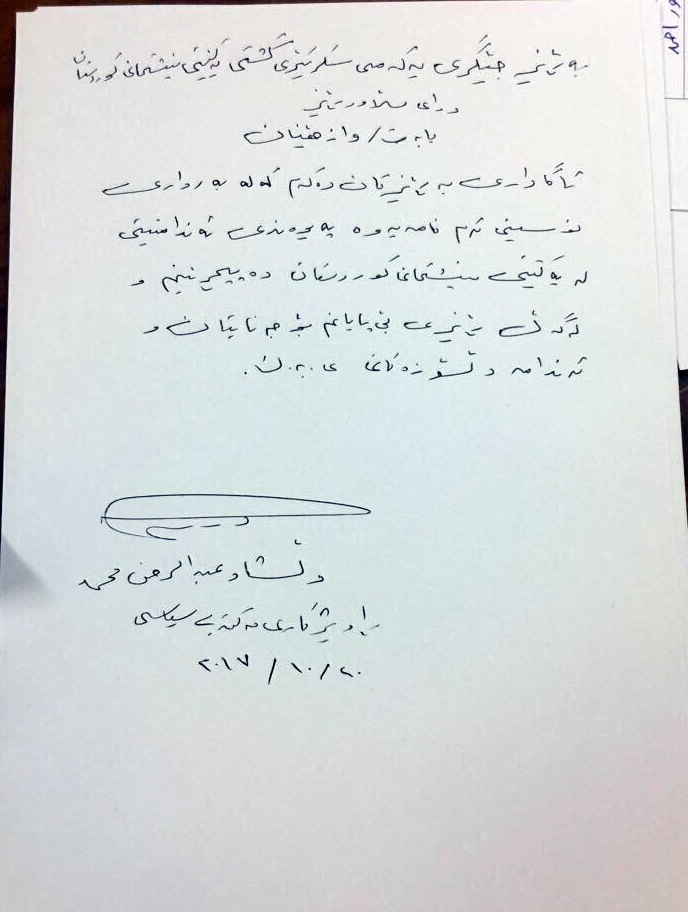 بەڕێز جێگری یەکەمی سکرتێری گشتی یەکێتی نیشتمانی کوردستان
دوای سڵاو و ڕێز
بابەت/ وازهێنان
ئاگاداری بەڕێزتان دەکەم کە لە بەرواری
نوسینی ئەم نامەیەوە پەیوەندی ئەندامێتی
لە یەکێتی نیشتمانی کوردستان دەپچڕێنم و
لەگەڵ ڕێزی بێ پایانم بۆ جەنابتان و
ئەندامە دڵسۆزەکانی ی.ن.ک.
دڵشاد عبدالرحمن محمد
ڕاوێژکاری مەکتەبی سیاسی
٢٠١٧/١٠/٢٠